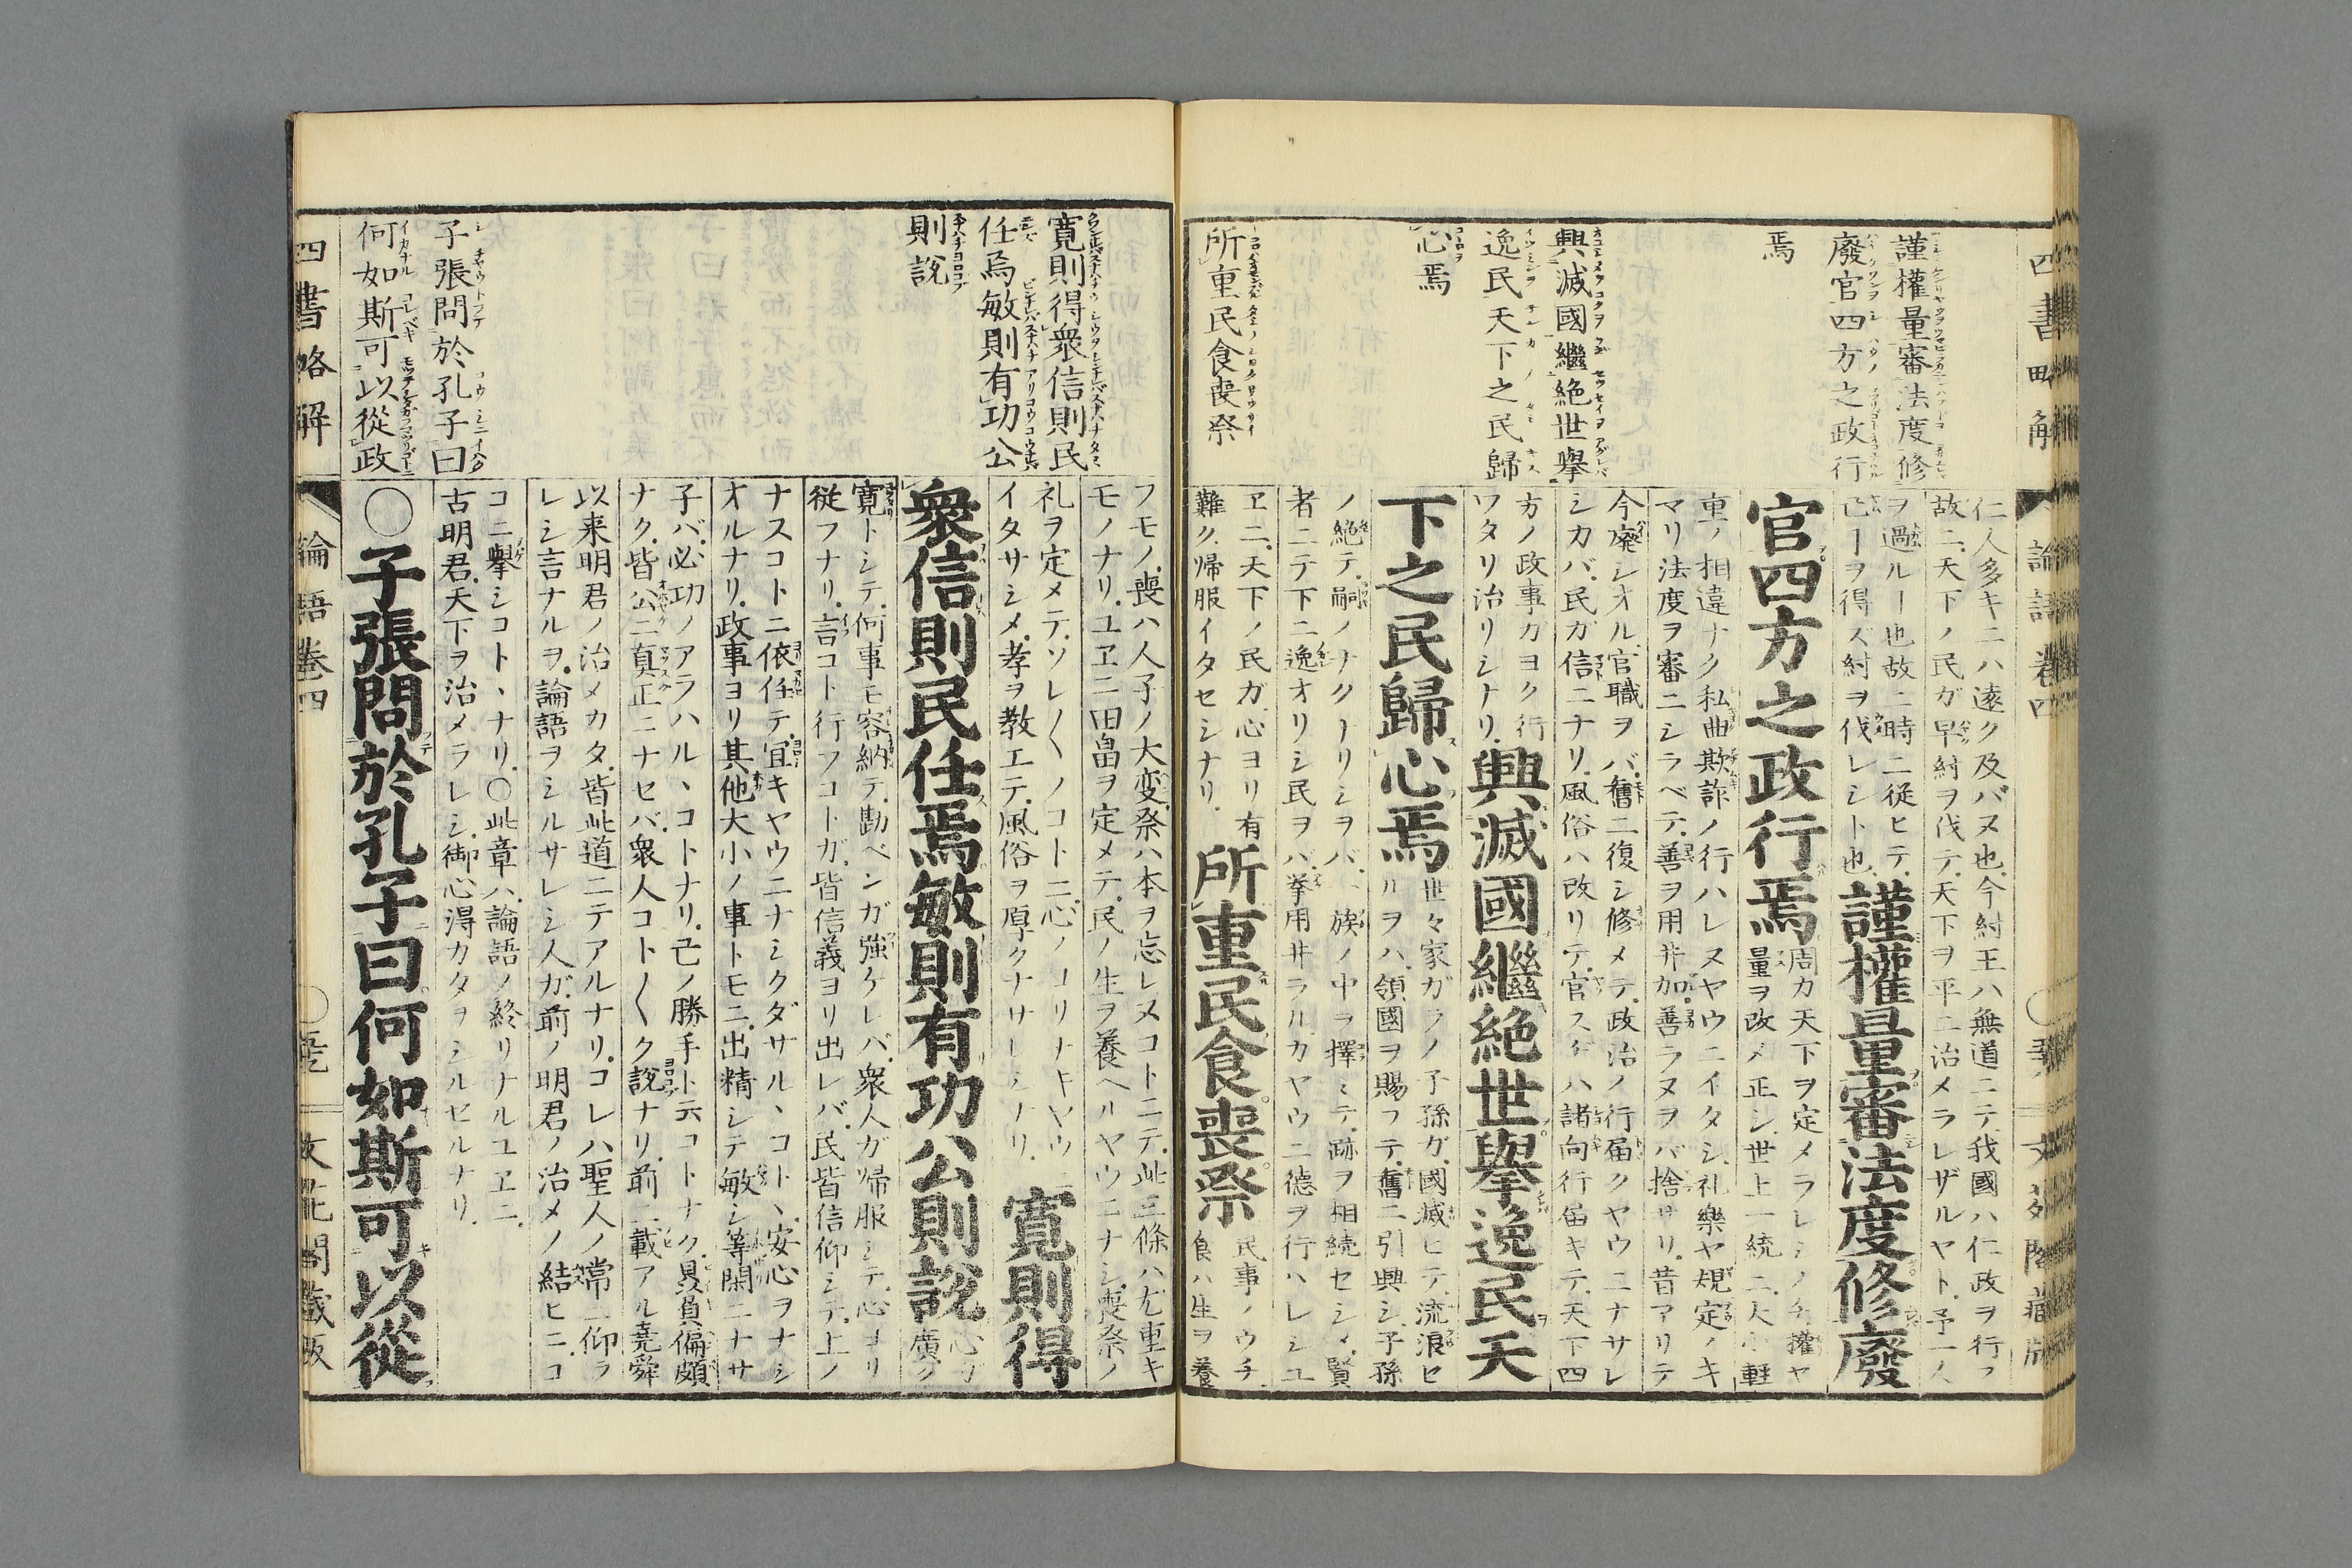 四書略解
論語卷四
謹權量審法度修
廢官四方之政行
焉
興滅國繼絶世擧
逸民天下之民歸
心焉
所重民食喪祭
仁人多キニハ遠ク及バヌ也今紂王ハ無道ニテ我國ハ仁政ヲ行フ
故ニ天下ノ民ガ早ク紂ヲ伐テ天下ヲ平ニ治メラレザルヤト予一人
ヲ過ルヿ也故ニ時ニ従ヒテ
已ヿヲ得ズ紂ヲ伐レシト也
謹權量審法度修廢
官四方之政行焉
周カ天下ヲ定メラレシノチ權ヤ
量ヲ改メ正シ世上一統ニ大小軽
重ノ相違ナク私曲欺詐ノ行ハレヌヤウニイタシ礼樂ヤ規定ノキ
マリ法度ヲ審ニシラベテ善ヲ用井加善ラヌヲバ捨サリ昔アリテ
今廢シオル官職ヲバ舊ニ復シ修メテ政治ノ行届クヤウニナサレ
シカバ民ガ信ニナリ風俗ハ改リテ官スグハ諸向行届キテ天下四
方ノ政事ガヨク行
ワタリ治リシナリ
興滅國繼絶世擧逸民天
下之民歸心焉
世々家ガラノ子孫ガ國滅ヒテ流浪セ
ルヲハ領國ヲ賜フテ舊ニ引興シ子孫
ノ絶テ嗣ノナクナリシヲバ一族ノ中ヲ擇ミテ跡ヲ相続セシメ賢
者ニテ下ニ逸オリシ民ヲバ挙用井ラルカヤウニ德ヲ行ハレシユ
ヱニ天下ノ民ガ心ヨリ有
難ク帰服イタセシナリ
所重民食喪祭
民事ノウチ
食ハ生ヲ養
寛則得衆信則民
任焉敏則有功公
則說
子張問於孔子曰
何如斯可以從政
フモノ喪ハ人子ノ大変祭ハ本ヲ忘レヌコトニテ此三條ハ尤重キ
モノナリユヱニ田畠ヲ定メテ民ノ生ヲ養ヘルヤウニナシ喪祭ノ
礼ヲ定メテソレ〱ノコトニ心ノコリナキヤウ
イタサシメ孝ヲ教エテ風俗ヲ厚クナサレシナリ
寛則得
衆信則民任焉敏則有功公則說
心ヲ
廣ク
寛トシテ何事モ容納テ勘ベンガ強ケレバ衆人ガ帰服シテ心ヨリ
従フナリ言コト行フコトガ皆信義ヨリ出レバ民皆信仰シテ上ノ
ナスコトニ依任テ宜キヤウニナシクダサルヽコトヽ安心ヲナシ
オルナリ政事ヨリ其他大小ノ事トモニ出精シテ敏シ等閑ニナサ
子バ必功ノアラハルヽコトナリ己ノ勝手ト云コトナク贔負偏頗
ナク皆公ニ真正ニナセバ衆人コト〱ク說ナリ前ニ載アル堯舜
以来明君ノ治メカタ皆此道ニテアルナリコレハ聖人ノ常ニ仰ラ
レシ言ナルヲ論語ヲシルサレシ人ガ前ノ明君ノ治メノ結ヒニコ
コニ擧シコトヽナリ〇此章ハ論語ノ終リナルユヱニ
古明君天下ヲ治メラレシ御心得カタヲシルセルナリ
〇子張問於孔子曰何如斯可以從
四書略解
論語卷四